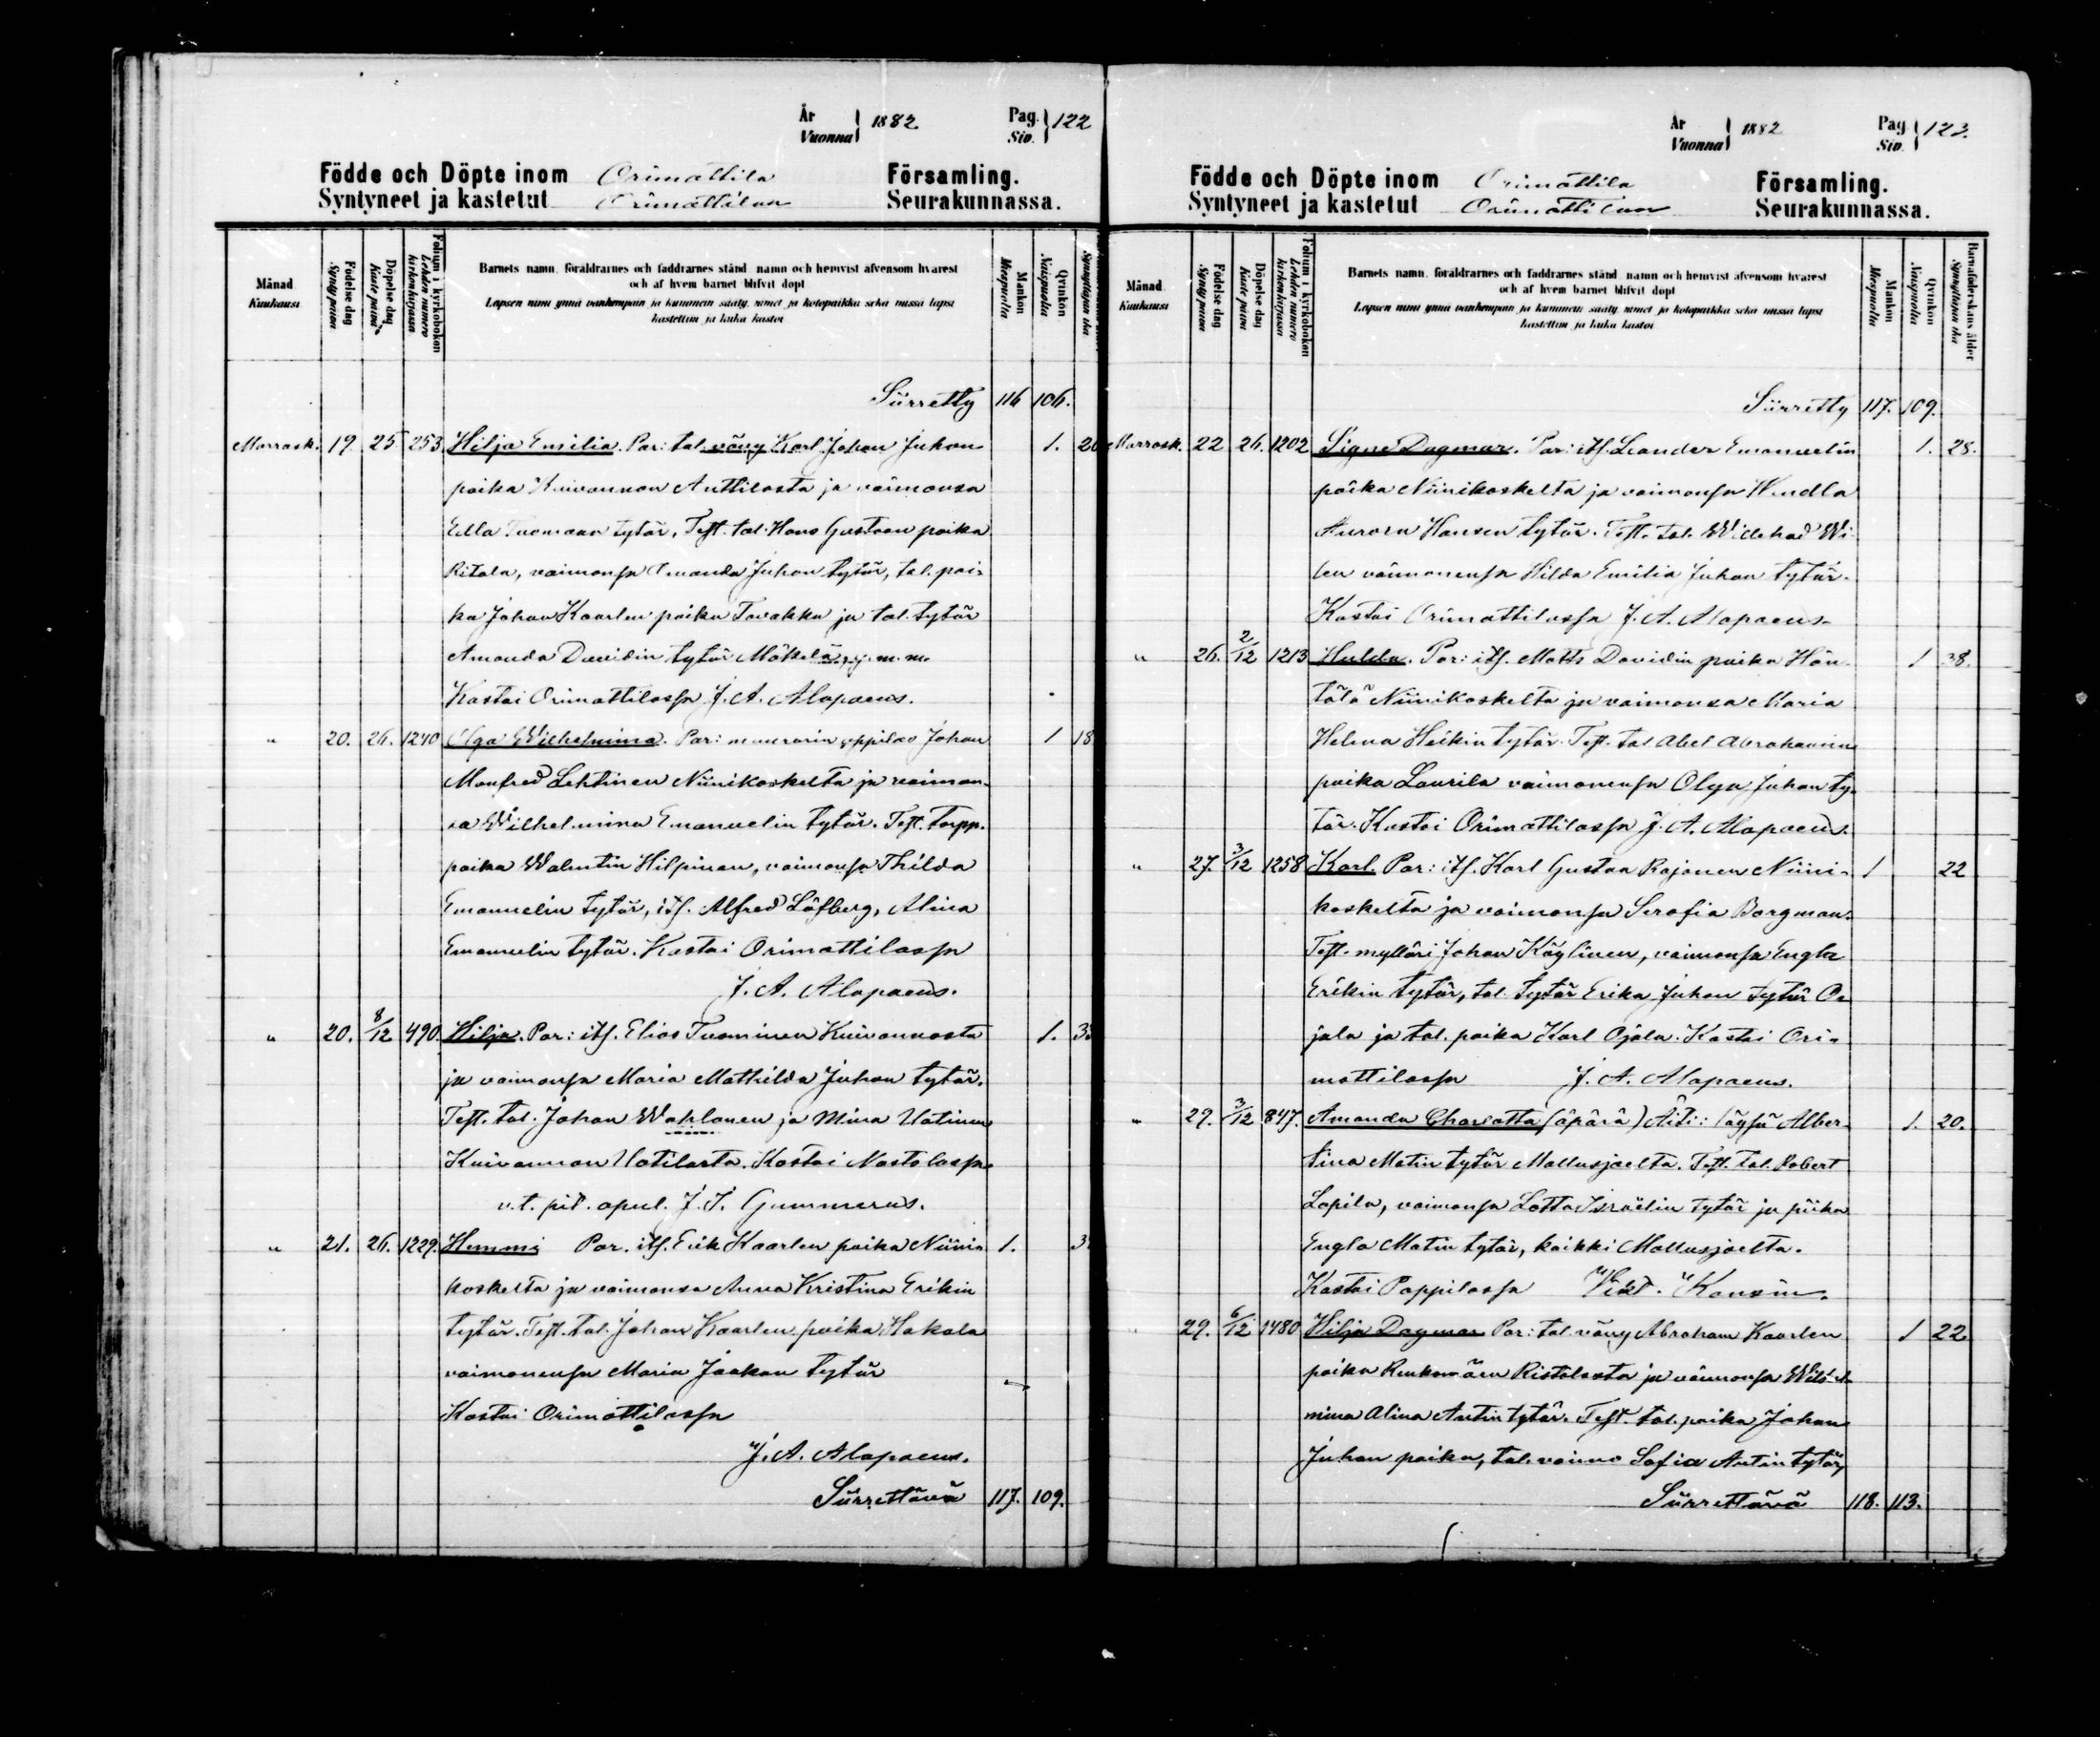 År Vuonna } 1882. Pag. Siv. } 122
Födde och Döpte inom Orimattila Församling.
Syntyneet ja kastetut Orimattilan Seurakunnassa.
Månad Kuukausi
Födelse dag Synty päivä
Döpelse dag Kaste päivä
Folium i kyrkoboken Lehden numero kirkonkirjassa
Barnets namn, föräldrarnes och faddrarnes stånd, namn och hemvist äfvensom hvarest
och af hvem barnet blifvit döpt
Lapsen nimi ynnä vanhempain ja kummein sääty, nimet ja kotopaikka sekä missä lapsi
kastettiin ja kuka kastoi
Mankön Miespuolia
Qvinkön Naispuolia
Synnyttäjän ikä
Siirretty 116 106.
Marrask. 19. 25 253 Hilja Emilia. Par: tal. vävy Karl Johan Juhan 1.
poika Kuivannon Anttilasta ja vaimonsa
Edla Tuomaan tytär, Test. tal. Hans Gustaan poika
Ritala, vaimonsa Amanda Juhan tytär, tal. poi-
ka Johan Kaarlen poika Tavakka ja tal. tytär
Amanda Davidin tytär Mökelä, y. m. m.
Kastoi Orimattilassa J. A. Alopaeus.
" 20. 26. 1240 Olga Wilhelmina. Par: muurarin oppilas Johan 1 18
Manfred Lehtinen Niinikoskelta ja vaimon-
sa Wilhelmina Emanuelin tytär. Test. torpp.
poika Walentin Hilpinen, vaimonsa Thilda
Emanuelin tytär, its. Alfred Löfberg, Alina
Emanuelin tytär. Kastoi Orimattilassa
J. A. Alopaeus.
" 20. 8/12 490. Hilja. Par: its. Elias Tuominen Kuivannosta 1.
ja vaimonsa Maria Mathilda Juhan tytär.
Test. tal. Johan Wahlonen ja Mina Uotinen
Kuivannon Uotilasta. Kastoi Nastolassa
v.t. pit. apul. J. I. Gummerus.
" 21. 26. 1229. Hemmi Par. its. Erik Kaarlen poika Niini- 1.
koskelta ja vaimonsa Anna Kristina Erikin
tytär. Test. tal. Johan Kaarlen poika Hakala
vaimonensa Maria Jaakon tytär
Kastoi Orimattilassa
J. A. Alopaeus.
Siirrettävä 117. 109.
År Vuonna } 1882 Pag Siv. } 123.
Födde och Döpte inom Orimattila Församling.
Syntyneet ja kastetut Orimattilan Seurakunnassa.
Månad Kuukausi
Födelse dag Synty päivä
Döpelse dag Kaste päivä
Folium i kyrkoboken Lehden numero kirkonkirjassa
Barnets namn, föräldrarnes och faddrarnes stånd, namn och hemvist äfvensom hvarest
och af hvem barnet blifvit döpt
Lapsen nimi ynnä vanhempain ja kummein sääty, nimet ja kotopaikka sekä missä lapsi
kastettiin ja kuka kastoi
Mankön Miespuolia
Qvinkön Naispuolia
Barnaföderskans ålder Synnyttäjän ikä
Siirretty 117. 109.
Marrask. 22 26. 1202 Signe Dagmar. Par: its. Leander Emanuelin 1. 28.
poika Niinikoskelta ja vaimonsa Hendla
Aurora Hansen tytär. Test. tal. Widehad Wi-
len vaimonensa Hilda Emilia Juhan tytär.
Kastoi Orimattilassa J. A. Alopaeus.
" 26. 2/12 1213 Hulda. Par: its. Matts Davidin poika Hän- 1 38.
tälä Niinikoskelta ja vaimonsa Maria
Helena Heikin tytär. Test. tal. Abel Abrahamin
poika Laurila vaimonensa Olga Juhan ty-
tär. Kastoi Orimattilassa J. A. Alopaeus.
" 27. 3/12 1258 Karl. Par: its. Karl Gustaa Rajanen Niini- 1 22
koskelta ja vaimonsa Serafia Borgman.
Test. mylläri Johan Käylinen, vaimonsa Engla
Erikin tytär, tal. tytär Erika Juhan tytär O-
jala ja tal. poika Karl Ojala. Kastoi Ori-
mattilassa J. A. Alopaeus.
" 29. 3/12 847. Amanda Charlotta (äpärä) Äiti: löysä Alber- 1. 20.
tina Matin tytär Mallusjoelta. Test. tal. Robert
Lapila, vaimonsa Lotta Israëlin tytär ja piika
Engla Matin tytär, kaikki Mallusjoelta.
Kastoi Pappilassa Vikt. Konsin.
" 29. 6/12 1480 Hilja Dagmar Par: tal. vävy Abraham Kaarlen 1 22
poika Renkomäen Ristolasta ja vaimonsa Wilhel-
mina Alina Antin tytär. Test. tal. poika Johan
Juhan poika, tal. vaimo Sofia Antin tytär,
Siirrettävä 118. 113.